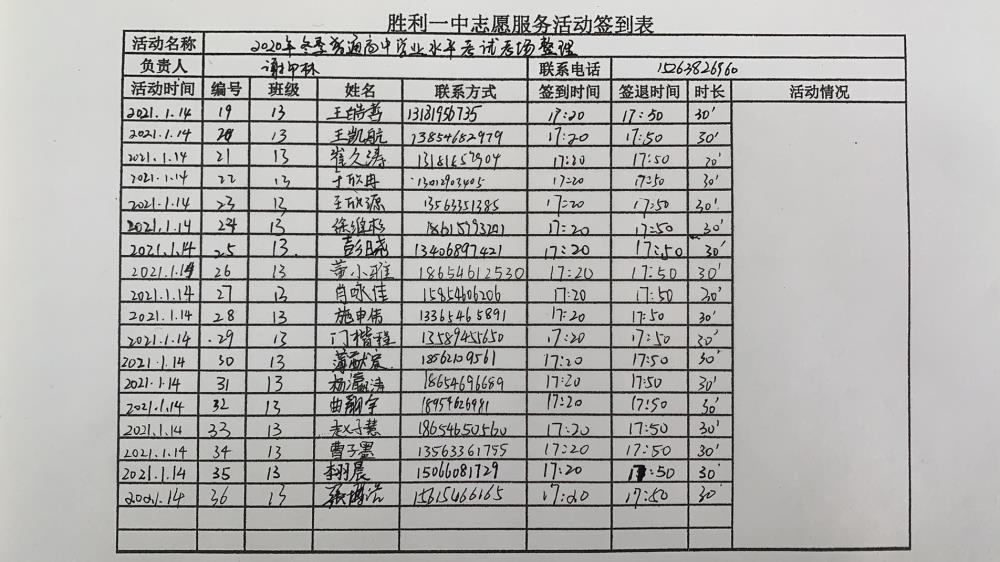 胜利一中志愿服务活动签到表
活动名称 2020年冬季普通高中学业水平考试考场整理
负责人 联系电话 15263826960
活动时间 编号 班级 姓名 联系方式 签到时间 签退时间 时长 活动情况
2021.1.14 19 13 王皓哲 13181956735 17:20 17:50 30'
2021.1.14 20 13 王凯航 13854682979 17:20 17:50 30'
2021.1.14 21 13 崔久涛 17:20 17:50 30'
2021.1.14 22 13 于欣冉 13012903405 17:20 17:50 30'
2021.1.14 23 13 王欣源 13563351385 17:20 17:50 30'
2021.1.14 24 13 徐维杉 17:20 17:50 30'
2021.1.14 25 13 彭曰晓 13406897421 17:20 17:50 30'
2021.1.14 26 13 董小雅 18654612530 17:20 17:50 30'
2021.1.14 27 13 肖咏佳 15854606206 17:20 17:50 30'
2021.1.14 28 13 施申伟 13365465891 17:20 17:50 30'
2021.1.14 29 13 门楷程 13589455650 17:20 17:50 30'
2021.1.14 30 13 18562109561 17:20 17:50 30'
2021.1.14 31 13 杨瀛涛 18654696689 17:20 17:50 30'
2021.1.14 32 13 曲翱宇 18954626981 17:20 17:50 30'
2021.1.14 33 13 赵子慧 18654650560 17:20 17:50 30'
2021.1.14 34 13 曹子墨 13563361755 17:20 17:50 30'
2021.1.14 35 13 李羽晨 15066081729 17:20 17:50 30'
2021.14 36 13 张博浩 15615466165 17:20 17:50 30'